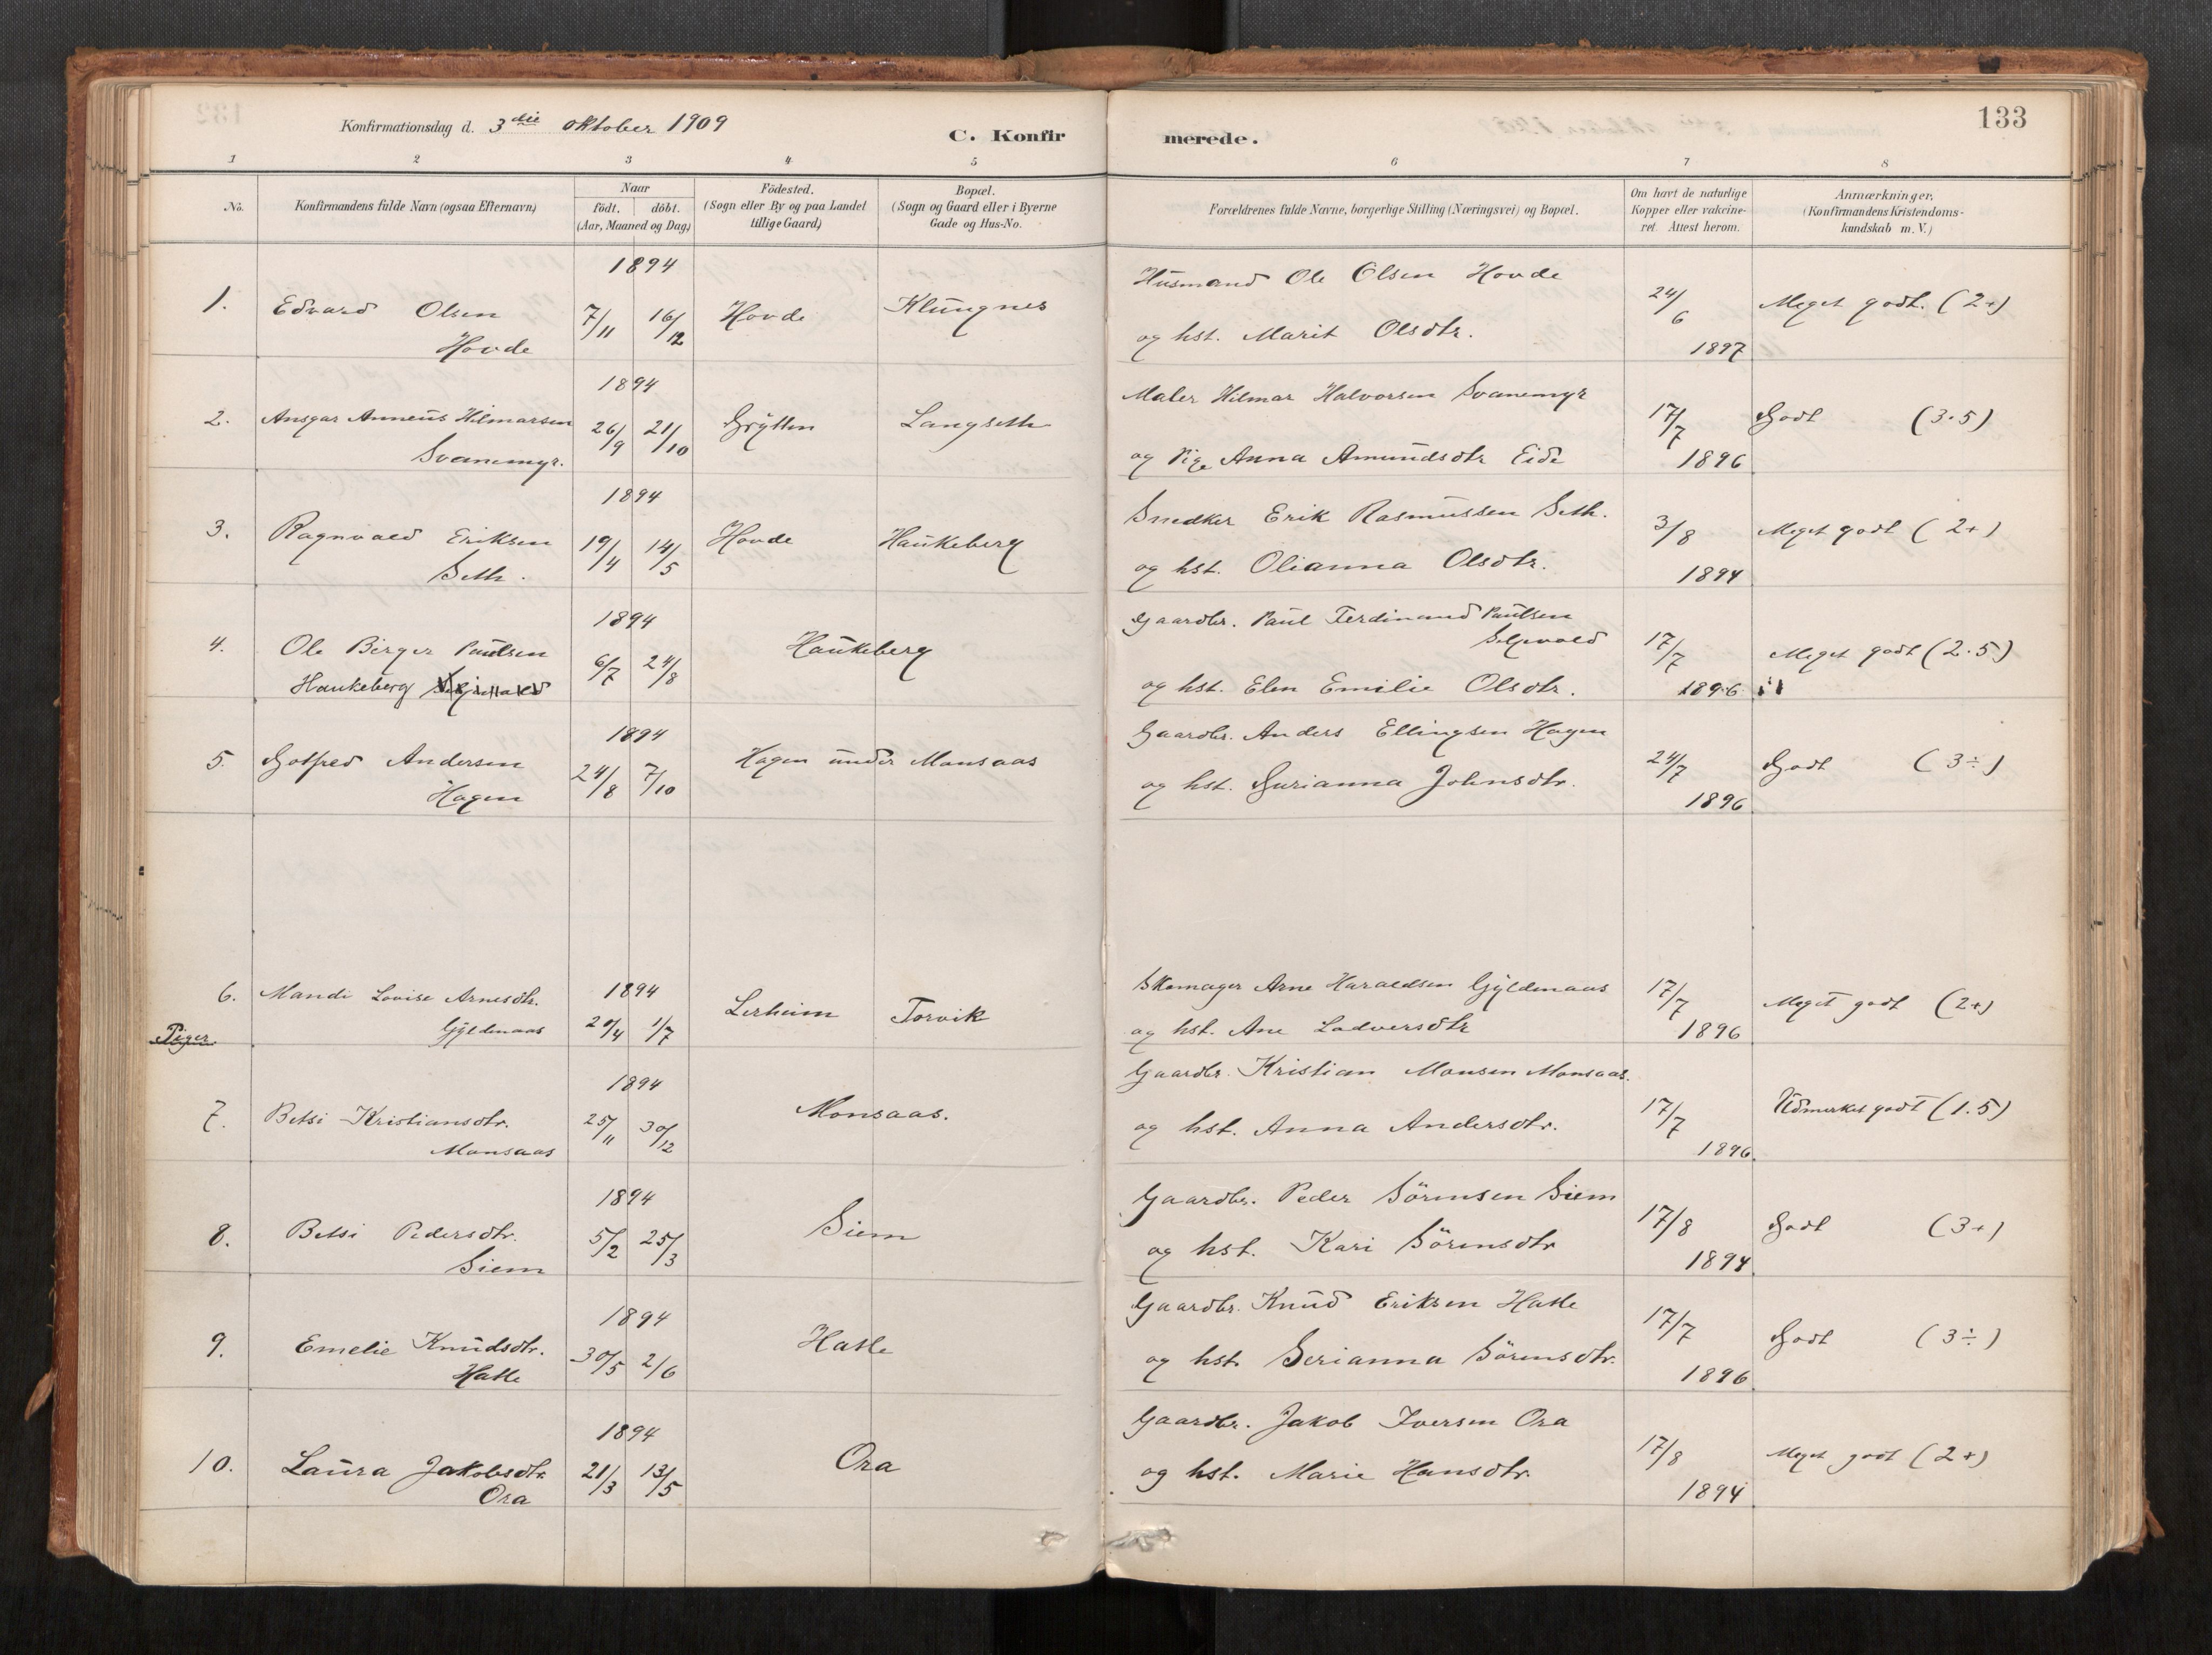 133
Konfirmationsdag d. 3die Oktober 1909
C. Konfirmerede.
1 2 3 4 5 6 7 8
No.
Konfirmandens fulde Navn (ogsaa Efternavn)
Naar
födt. döbt.
(Aar, Maaned og Dag)
Födested.
(Sogn eller By og paa Landet
tillige Gaard)
Bopæl.
(Sogn og Gaard eller i Byerne
Gade og Hus-No.
Forældrenes fulde Navne, borgerlige Stilling (Næringsvei) og Bopæl.
Om havt de naturlige
Kopper eller vakcine-
ret. Attest herom.
Anmærkninger.
(Konfirmandens Kristendoms-
kundskab m. V.)
1894
1. Edvard Olsen 7/11 16/12 Hovde Klungnes
Hovde
Husmand Ole Olsen Hovde
og hst. Marit Olsdtr.
24/6
1897
Meget godt. (2+)
1894
2. Ansgar Anneus Hilmarsen 26/9 21/10 Grytten Langseth
Svanemyr.
Maler Hilmar Halvorsen Svanemyr
og Pige Anna Amundsdtr Eide
17/7
1896
Godt (3.5)
1894
3. Ragnvald Eriksen 19/4 14/5 Hovde Haukeberg
Seth.
Snedker Erik Rasmussen Seth.
og hst. Olianna Olsdtr.
3/8
1894
Meget godt (2+)
1894
4. Ole Birger Paulsen 6/7 24/8 Haukeberg
Haukeberg
Gaardbr. Paul Ferdinand Paulsen
og hst. Elen Emilie Olsdtr.
17/7
1896
Meget godt (2.5)
1894
5. Gotfred Andersen 24/8 7/10 Hagen under Monsaas
Hagen
Gaardbr. Anders Ellingsen Hagen
og hst. Gurianna Johnsdtr.
24/7
1896
Godt (3÷)
Piger
1894
6. Mandi Lovise Arnesdtr. 20/4 1/7 Lerheim Torvik
Gyldenaas
Skomager Arne Haraldsen Gyldenaas
og hst. Ane Ladversdtr
17/7
1896
Meget godt (2+)
1894
7. Betsi Kristiansdtr. 25/11 30/12 Monsaas.
Monsaas
Gaardbr. Kristian Monsen Monsaas.
og hst. Anna Andersdtr.
17/7
1896
Udmerket godt (1.5)
1894
8. Betsi Pedersdtr. 5/2 25/3 Siem
Siem
Gaardbr. Peder Sörensen Siem
og hst. Kari Sörensdtr
17/8
1894
Godt (3+)
1894
9. Emelie Knudsdtr. 30/5 2/6 Hatle
Hatle
Gaardbr. Knud Eriksen Hatle
og hst. Serianna Sörensdtr.
17/7
1896
Godt (3÷)
1894
10. Laura Jakobsdtr 21/3 13/5 Ora
Ora
Gaardbr. Jakob Iversen Ora
og hst. Marie Hansdtr.
17/8
1894
Meget godt (2+)